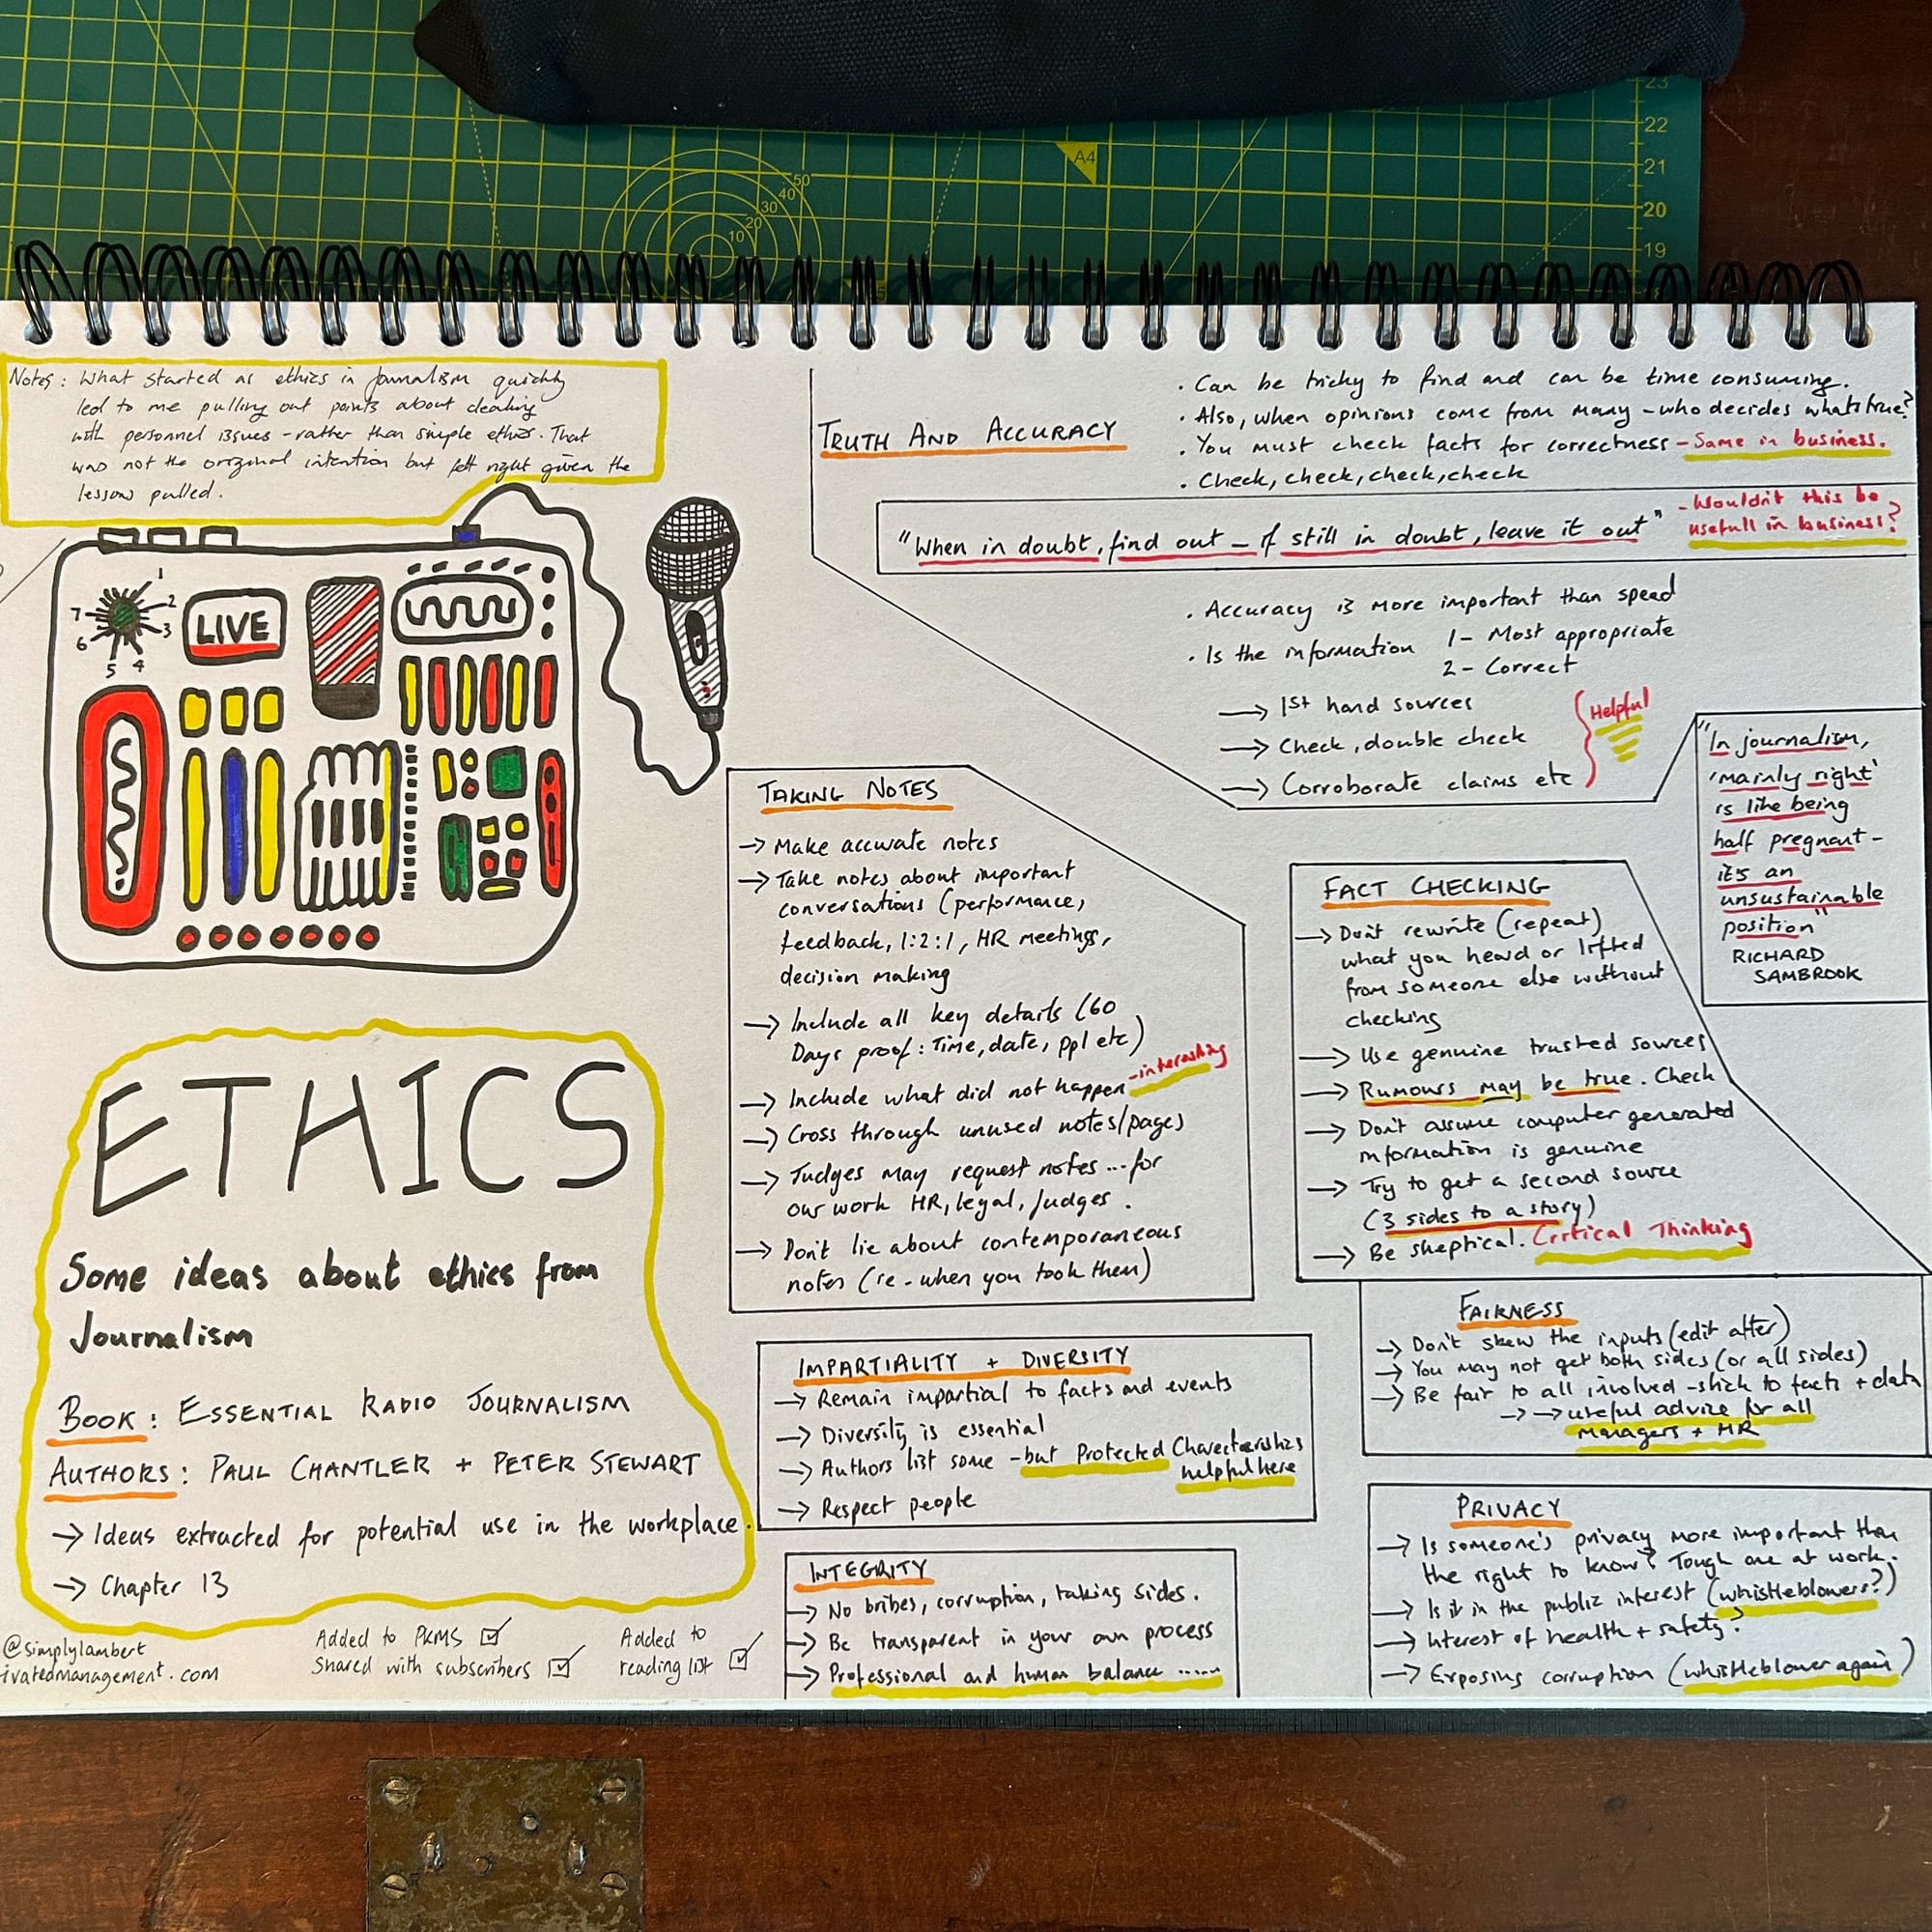 23
22
21
20
19
A4
50
40
30
20
10
Notes: What started as ethics in Journalism quickly
led to me pulling out points about dealing
with personnel issues - rather than simple ethics. That
was not the original intention but felt right given the
lessons pulled.
1
2
3
4
5
6
7
LIVE
ETHICS
Some ideas about ethics from
Journalism
BOOK: ESSENTIAL RADIO JOURNALISM
AUTHORS: PAUL CHANTLER + PETER STEWART
→ Ideas extracted for potential use in the workplace.
→ Chapter 13
@simplylambert
ivatedmanagement.com
Added to PKMS ☑
Shared with subscribers ☑
Added to
reading list ☑
TRUTH AND ACCURACY
· Can be tricky to find and can be time consuming.
· Also, when opinions come from many - who decides whats true?
· You must check facts for correctness - Same in business.
· Check, check, check, check
"When in doubt, find out – if still in doubt, leave it out"
- Wouldn't this be
usefull in business?
· Accuracy is more important than speed
· Is the information 1- Most appropriate
2- Correct
→ 1st hand sources
→ Check, double check
→ Corroborate claims etc
Helpful
"In journalism,
'mainly right'
is like being
half pregnant -
it's an
unsustainable
position"
RICHARD
SAMBROOK
TAKING NOTES
→ Make accurate notes
→ Take notes about important
conversations (performance,
feedback, 1:2:1, HR meetings,
decision making
→ Include all key details (60
Days proof: Time, date, ppl etc)
→ Include what did not happen - interesting
→ Cross through unused notes/pages
→ Judges may request notes ... for
our work HR, legal, judges.
→ Don't lie about contemporaneous
notes (re - when you took them)
FACT CHECKING
→ Don't rewrite (repeat)
what you heard or lifted
from someone else without
checking
→ Use genuine trusted sources
→ Rumours may be true. Check
→ Don't assume computer generated
information is genuine
→ Try to get a second source
(3 sides to a story)
→ Be skeptical. Critical Thinking
IMPARTIALITY + DIVERSITY
→ Remain impartial to facts and events
→ Diversity is essential
→ Authors list some - but Protected Charecteristics
helpful here
→ Respect people
FAIRNESS
→ Don't skew the inputs (edit after)
→ You may not get both sides (or all sides)
→ Be fair to all involved - stick to facts + data
→ → useful advice for all
managers + HR
INTEGRITY
→ No bribes, corruption, taking sides.
→ Be transparent in your own process
→ Professional and human balance ......
PRIVACY
→ Is someone's privacy more important than
the right to know? Tough one at work.
→ Is it in the public interest (whistleblowers?)
→ Interest of health + safety?
→ Exposing corruption (whistleblower again)